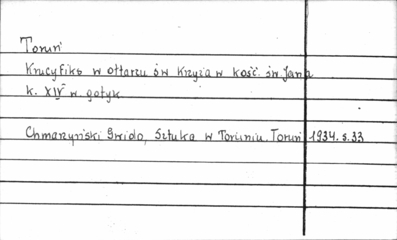 Toruń
Krucyfiks w ołtarzu św Krzyża w kośc. św. Jana
k. XIV w. gotyk
Chmarzyński Gwido, Sztuka w Toruniu. Toruń 1934. s. 33